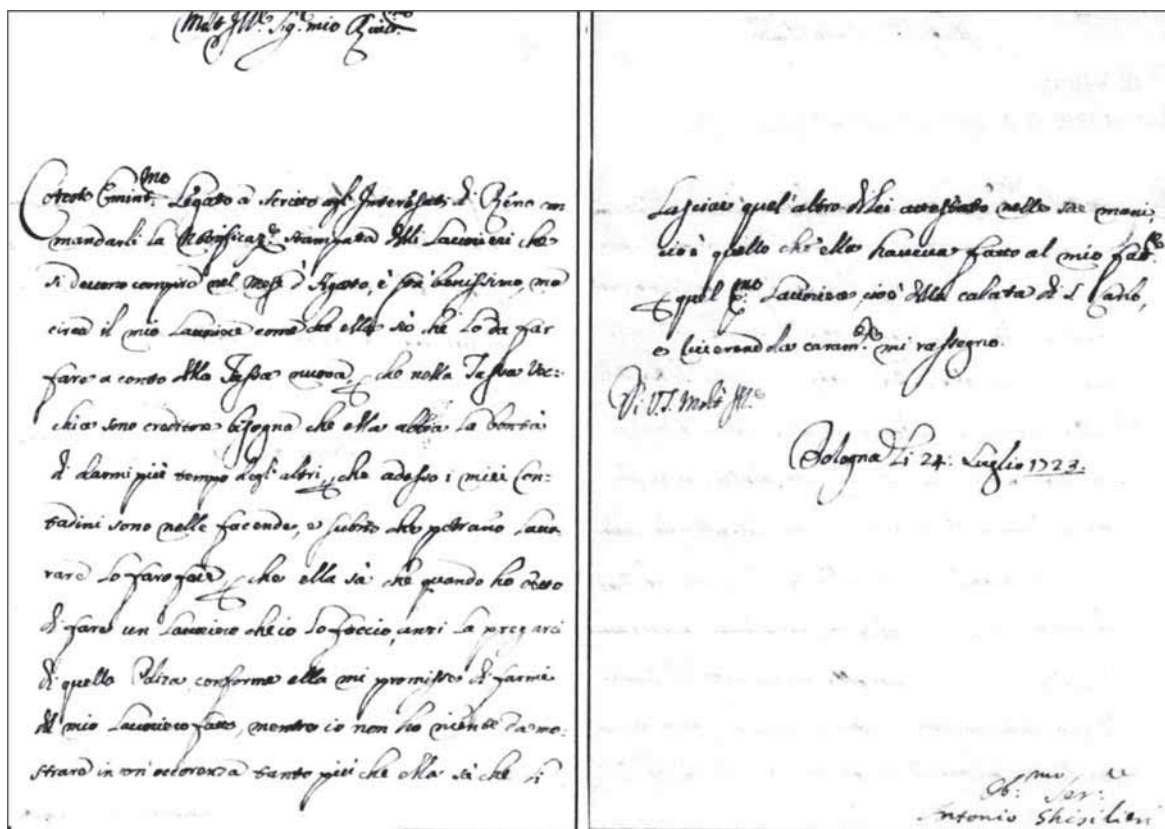 Molt' Ill.re Sig.r mio
Cotesto Emin.mo Legato à scritto agl'Interessati di Reno con
mandarli la Notificaz.e stampata delli Lavorieri che
si devono compire nel Mese d'Agosto, e stà benissimo, mà
circa il mio Lavoriere come che ella sà che lo da far
fare a conto della Tassa nuova, che nella Tassa Vec:
chia sono creditore bisogna che ella abbia la bontà
di darmi più tempo degl'altri, che adesso i miei Con:
tadini sono nelle facende, e subito che potrano lavo
rare lo farò fare, che ella sà che quando ho detto
di fare un Lavoriero che io lo faccio, anzi la pregarei
di quella conforme ella mi promisse di farmi
del mio Lavoriero fatto, mentre io non ho niente da mo:
strare in un'occorenza tanto più che ella sà che li
Lasciai quel'altro di lei nelle sue mani,
cioè quello che ella haveva fatto al mio
quel Lavoriero cioè della calata di S. Carlo,
e riverendola caram.te mi rassegno.
Di V.S. Molt' Ill.re
Bologna Li 24: Luglio 1723.
Ob.mo Ser.re
Antonio Ghisilieri